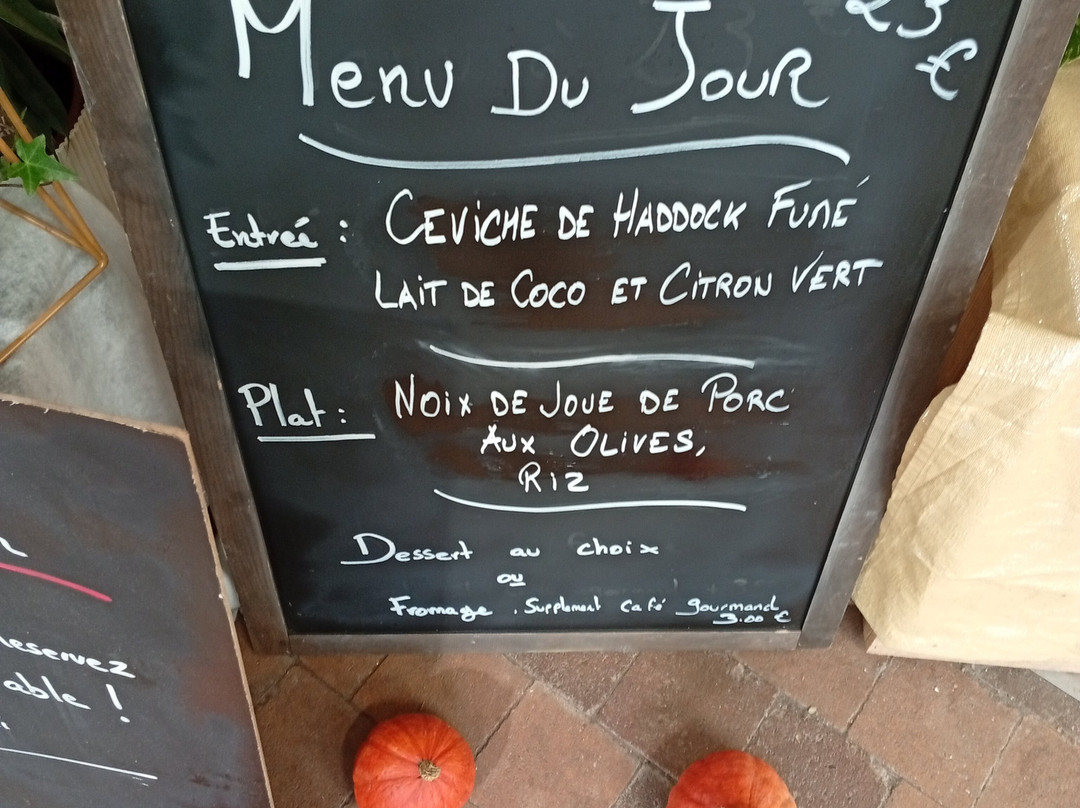 Menu Du Jour 23 €
Entrée : Ceviche de Haddock Fumé
Lait de Coco et Citron Vert
Plat : Noix de Joue de Porc
Aux Olives,
Riz
Dessert au choix
ou
Fromage . Supplement café gourmand
3.00 €
eservez
able !